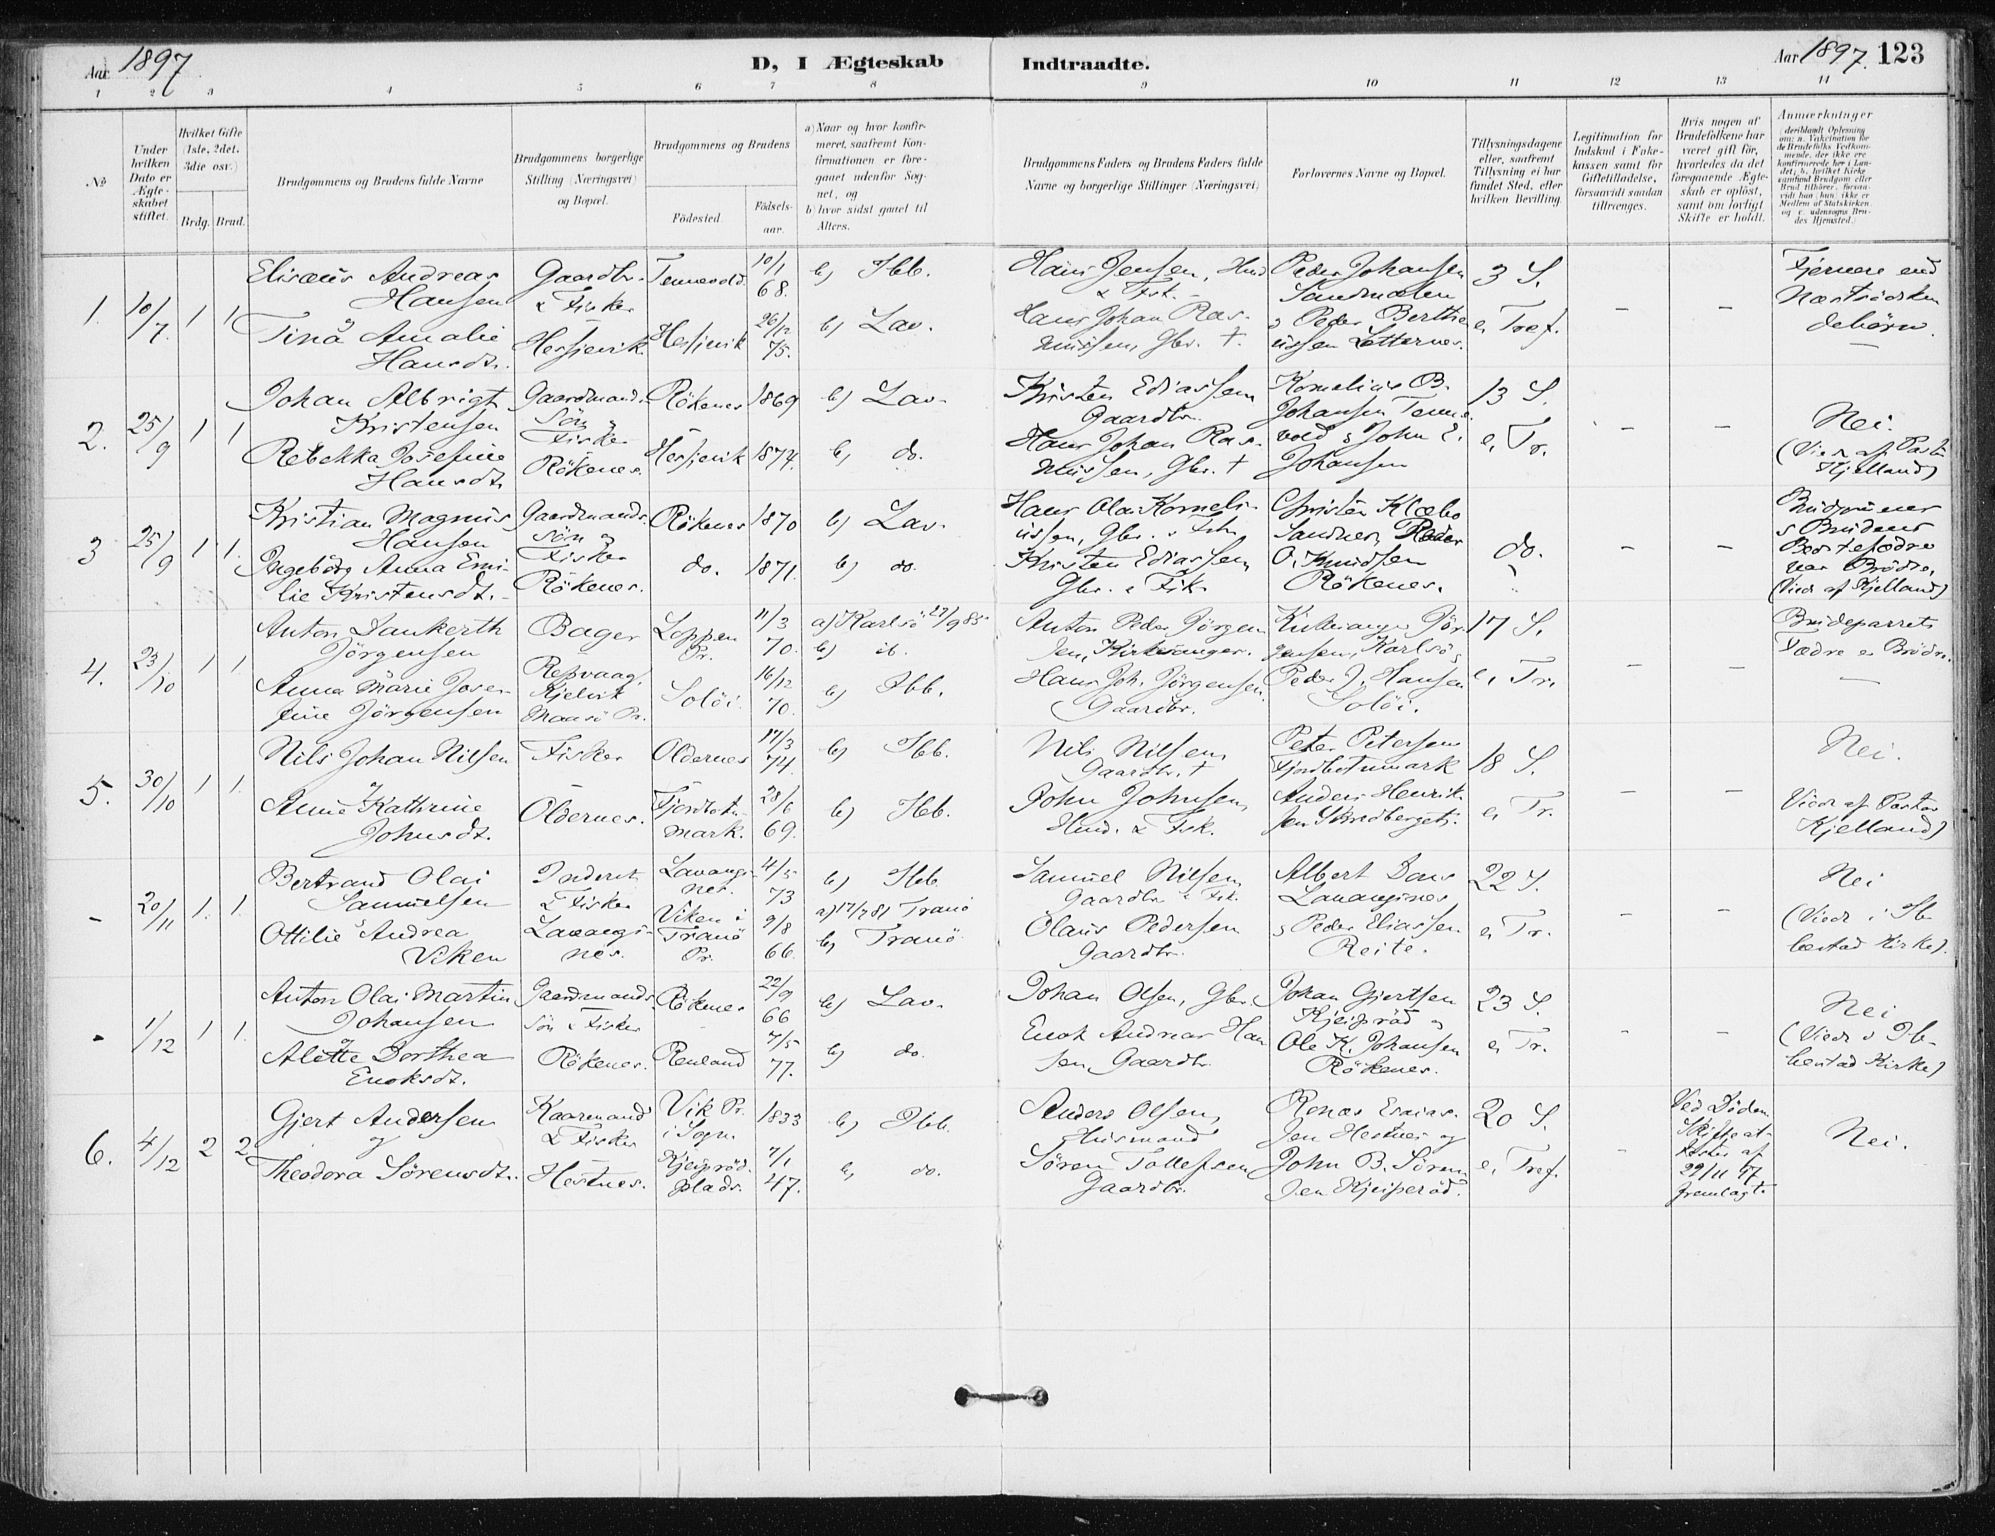 Aar 1897.
D, I Ægteskab Indtraadte.
Aar 1897. 123
1 2 3 4 5 6 7 8 9 10 11 12 13 14
No
Under hvilken Dato er Ægteskabet stiftet.
Hvilket Gifte (1ste, 2det, 3die osv.)
Brdg. Brud.
Brudgommens og Brudens fulde Navne
Brudgommens borgerlige Stilling (Næringsvei) og Bopæl.
Brudgommens og Brudens
Fødested.
Fødselsaar.
a) Naar og hvor konfirmeret, saafremt Konfirmationen er foregaaet udenfor Sognet, og
b) hvor sidst gaaet til Alters.
Brudgommens Faders og Brudens Faders fulde Navne og borgerlige Stillinger (Næringsvei)
Forlovernes Navne og Bopæl.
Tillysningsdagene eller, saafremt Tillysning ei har fundet Sted, efter hvilken Bevilling.
Legitimation for Indskud i Fokekassen samt for Giftetilladelse, forsaavidt saadan tiltrænges.
Hvis nogen af Brudefolkene har været gift før, hvorledes da det foregaaende Ægteskab er opløst, samt om lovligt Skifte er holdt.
Anmærkninger
1. 10/7. 1 1
Elisæus Andreas Hansen
&
Tina Amalie Hansdtr.
Gaardbr. & Fisker Hesjevik
Tennevold. 10/1 68.
Hesjevik 26/12 75.
b) Ibb.
b) Lav.
Hans Jensen, Hmd & Fsk.
Hans Johan Rasmussen, Gbr. †.
Peder Johansen Sandmælen
& Peder Bertheussen Lotternes.
3 S.
e. Tref.
–
–
Fjernere end Næstsödskendebörn.
2. 25/9 1 1
Johan Albrigt Kristensen
Rebekka Josefine Hansdtr.
Gaardmands Sön & Fisker Rökenes.
Rökenes 1869
Hesjevik 1874.
b) Lav.
b) do.
Kristen Ediassen Gaardbr.
Hans Johan Rasmussen, Gbr. †
Kornelius B. Johansen Tennevold & John E. Johansen
13 S.
e. Tr.
–
–
Nei.
(Viede af Pastor Kjelland)
3 25/9 1 1.
Kristian Magnus Hansen
Ingeborg Anna Emilie Kristensdt.
Gaardmands Sön og Fisker Rökenes.
Rökenes 1870
do. 1871.
b) Lav.
b) do.
Hans Olai Kornelinssen, Gbr. & Fsk.
Kristen Ediassen, Gbr. & Fsk.
Christen Klæbo Sandnes, Peder O. Knudsen Rökenes.
do.
–
–
Brudgommens & Brudens Bestefædre var Brödre.
(Viede af Kjelland)
4. 23/10 1 1.
Anton Dankerth Jörgensen
Anna Marie Josefine Jörgensen
Bager
Repvaag, Kjelvik Maasö Pr.
Loppen Pr. 11/3 70.
Solöi. 16/12 70.
a) Karlsö 27/9 85
b) ib.
b) Ibb.
Anton Peder Jörgensen, Kirkesanger.
Hans Joh. Jörgensen Gaardbr.
Kirkesanger Jörgensen, Karlsö &
Peder J. Hansen Solöi.
17 S.
e. Tr.
–
–
Brudeparrets Fædre er Brödre.
5. 30/10 1 1.
Nils Johan Nilsen
&
Anne Kathrine Johnsdt.
Fisker Oldernes.
Oldernes 17/3 74.
Fjordbotnmark. 28/6 69.
b) Ibb.
b) Ibb.
Nils Nilsen, Gaardbr. †
John Johnsen, Hmd. & Fsk.
Peter Petersen Fjordbotnmark
Anders Henriksen Skredberget.
18 S.
e. Tr.
–
–
Nei.
(Viede af Pastor Kjelland)
– 20/11 1. 1.
Bertrand Olai Samuelsen
&
Ottilie Andrea Viken
Inderst & Fisker Lavangsnes.
Lavangsnes. 4/5 73
Viken i Tranö Pr. 9/8 66.
b) Ibb
a) 17/7 81 Tranö
b) Tranö
Samuel Nilsen, Gaardbr & Fsk.
Olaus Pedersen Gaardbr.
Albert Dons Lavangsnes
& Peder Eliassen Reite.
22 S.
e. Tr.
–
–
Nei
(Viede i Ibbestad Kirke).
– 1/12 1 1.
Anton Olai Martin Johansen
&
Alette Dorthea Enoksdt.
Gaardmands Sön & Fisker Rökenes.
Rökenes 22/9 66
Renland 7/5 77.
b) Lav.
b) do.
Johan Olsen, Gbr.
Enok Andreas Hansen, Gaardbr.
Johan Gjertsen Kjeipröd og
Ole K. Johansen Rökenes.
23 S.
e. Tr.
–
–
Nei
(Viede i Ibbestad Kirke)
6. 4/12 2 2
Gjert Andersen
og
Theodora Sörensdt.
Kaarmand & Fisker Hestnes.
Vik Pr. i Sogn 1833
Kjeipröd. plads. 7/1 47.
b) Ibb.
b, do.
Anders Olsen, Husmand
Sören Tollefsen Gaardbr.
Renas Esaiassen Hestnes og
John B. Sörensen Kjeiperöd.
20 S.
e. Tref.
–
Ved Döden. Skifteattester af 29/11 97 fremlagt.
Nei.